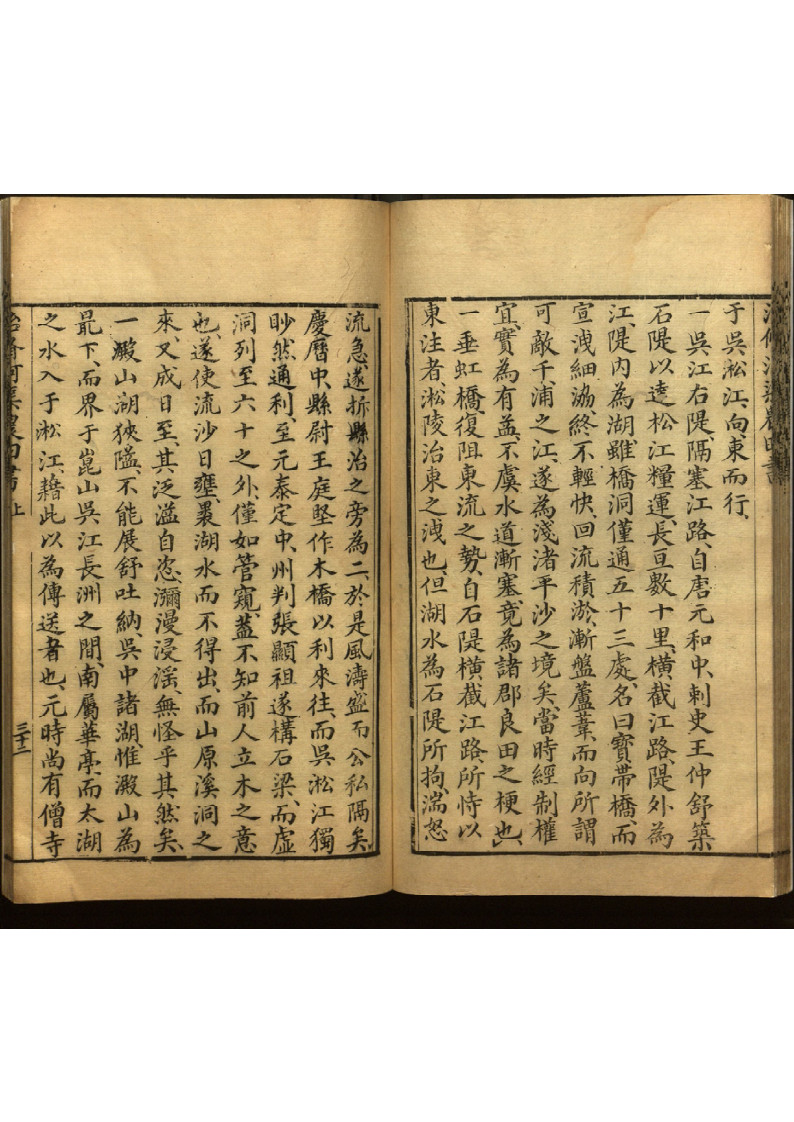 治脩河渠農田書
于吳淞江、向東而行、
一吳江右隄、隔塞江路、自唐元和中、刺史王仲舒築
石隄以達松江糧運、長亘數十里、橫截江路、隄外為
江、隄內為湖、雖橋洞僅通五十三處、名曰寶帶橋、而
宣洩細、終不輕快、回流積淤、漸盤蘆葦、而向所謂
可敵千浦之江、遂為淺渚平沙之境矣、當時經制權
宜、實為有益、不虞水道漸塞、竟為諸郡良田之梗也、
一垂虹橋、復阻東流之勢、自石隄橫截江路、所恃以
東注者、淞陵治東之洩也、但湖水為石隄所拘、湍怒
流急、遂折縣治之旁為二、於是風濤盛而公私隔矣、
慶曆中、縣尉王庭堅作木橋以利來往、而吳淞江獨
眇然通利、至元泰定中、州判張顯祖遂構石梁、而虛
洞列至六十之外、僅如管窺、蓋不知前人立木之意
也、遂使流沙日壅、纍湖水而不得出、而山原溪洞之
來、又成日至、其泛溢自恣、瀰漫浸淫、無怪乎其然矣、
一澱山湖狹隘、不能展舒吐納、吳中諸湖、惟澱山為
最下、而界于崑山吳江長洲之間、南屬華亭、而太湖
之水入于淞江、藉此以為傳送者也、元時尚有僧寺
治脩河渠農田書 上 三十二